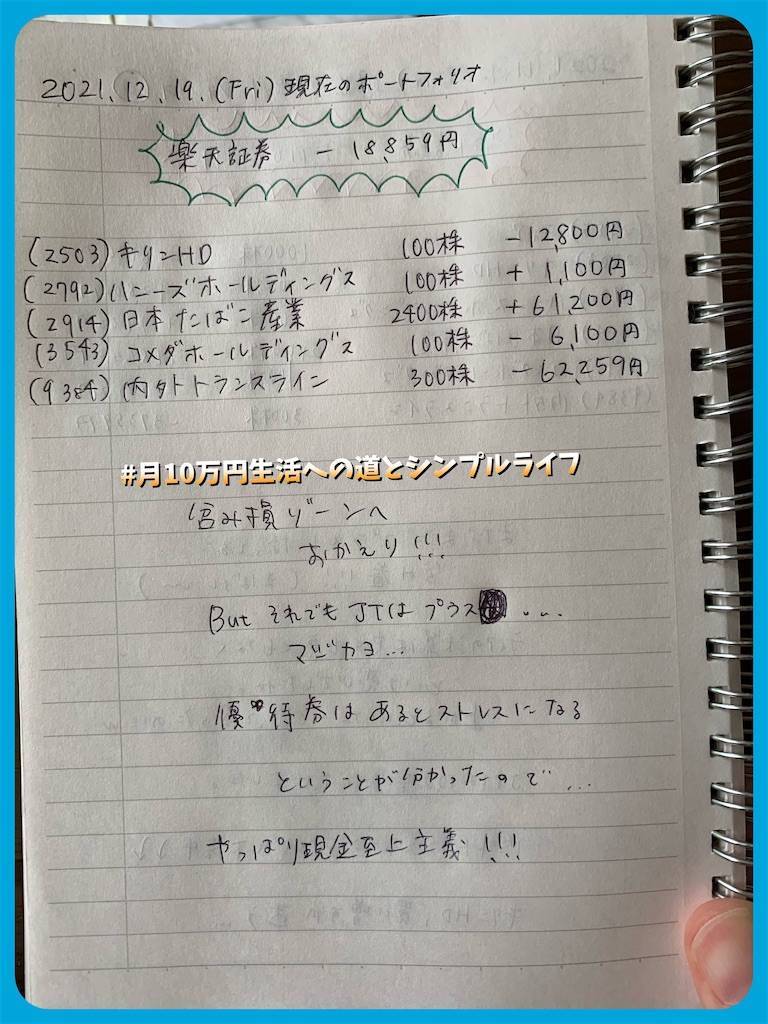 2021.12.19.(Fri) 現在のポートフォリオ
楽天証券 － 18,859円
(2503) キリンHD 100株 －12,800円
(2792) ハニーズホールディングス 100株 ＋ 1,100円
(2914) 日本たばこ産業 2400株 ＋ 61,200円
(3543) コメダホールディングス 100株 － 6,100円
(9384) 内外トランスライン 300株 － 62,259円
#月10万円生活への道とシンプルライフ
含み損ゾーンへ
おかえり!!!
But それでも JTは プラス ...
マジカヨ...
優待券は あると ストレスになる
ということが分かったので...
やっぱり現金至上主義!!!